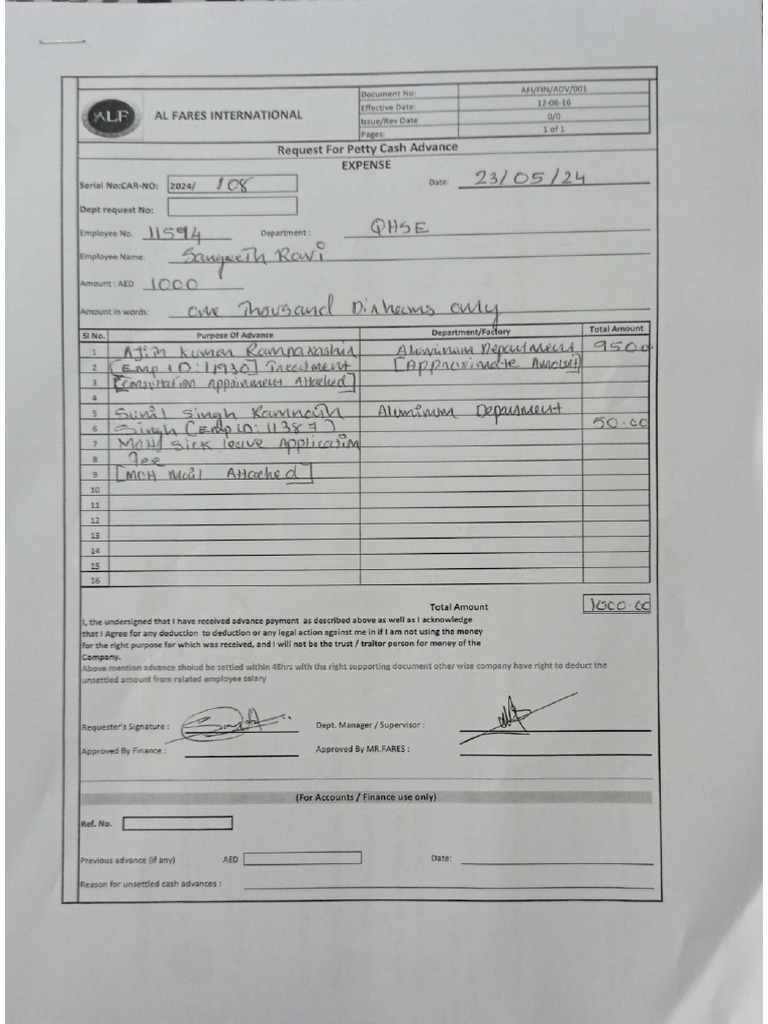 ALF
AL FARES INTERNATIONAL
Document No: AFI/FIN/ADV/001
Effective Date: 12-06-16
Issue/Rev Date 0/0
Pages: 1 of 1
Request For Petty Cash Advance
EXPENSE
Serial No:CAR-NO: 2024/ 108 Date: 23/05/24
Dept request No:
Employee No. 11594 Department: QHSE
Employee Name: Sangeeth Ravi
Amount : AED 1000
Amount in words: one Thousand Dirhams only
Sl No. Purpose Of Advance Department/Factory Total Amount
1 Ajith Kumar Aluminum Department 950.00
2 [Emp ID: 11930] Treatment [Approximate Amount]
3 [Consultation Appointment Attached]
4
5 Sunil Singh Ramnath Aluminum Department
6 Singh [Emp ID: 11387] 50.00
7 MOH Sick leave Application
8 Fee
9 [MOH Mail Attached]
10
11
12
13
14
15
16
Total Amount 1000.00
I, the undersigned that I have received advance payment as described above as well as I acknowledge
that I Agree for any deduction to deduction or any legal action against me in if I am not using the money
for the right purpose for which was received, and I will not be the trust / traitor person for money of the
Company.
Above mention advance sholud be settled within 48hrs with the right supporting document other wise company have right to deduct the
unsettled amount from related employee salary
Requester's Signature : Dept. Manager / Supervisor :
Approved By Finance : Approved By MR.FARES :
(For Accounts / Finance use only)
Ref. No.
Previous advance (if any) AED Date:
Reason for unsettled cash advances :